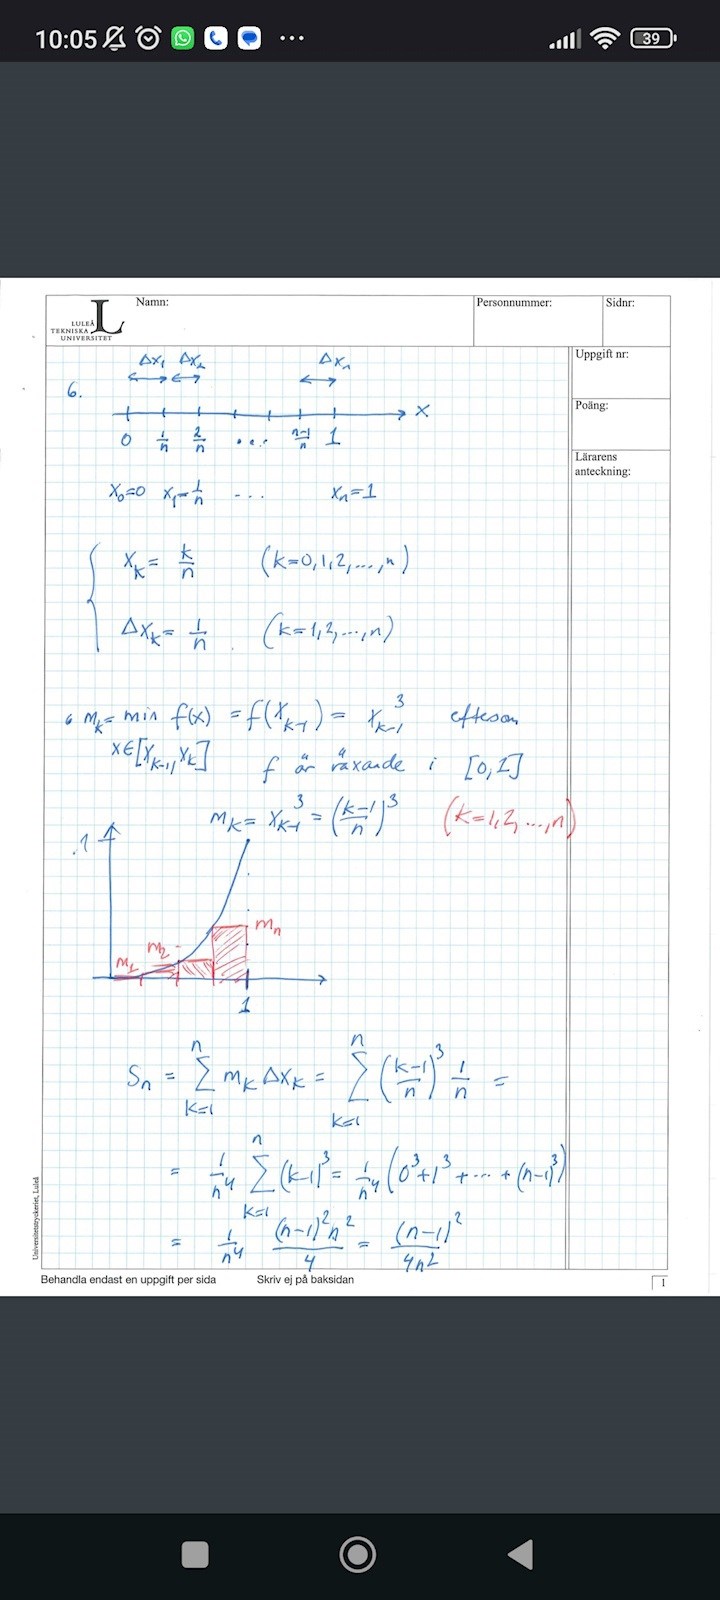 10:05 ... 39
Namn: Personnummer: Sidnr:
LULEÅ TEKNISKA UNIVERSITET L
Uppgift nr:
Poäng:
Lärarens anteckning:
Δx₁ Δx₂ Δxₙ
6.
0 1/n 2/n ... (n-1)/n 1 x
x₀=0 x₁=1/n ... xₙ=1
xₖ = k/n (k=0,1,2,...,n)
Δxₖ = 1/n . (k=1,2,...,n)
mₖ = min f(x) = f(xₖ₋₁) = xₖ₋₁³ efteson
x∈[xₖ₋₁, xₖ] f är växande i [0,1]
mₖ = xₖ₋₁³ = ((k-1)/n)³ (k=1,2,...,n)
1
m₁ m₂ mₙ
1
Sₙ = ∑ₖ₌₁ⁿ mₖ Δxₖ = ∑ₖ₌₁ⁿ ((k-1)/n)³ 1/n =
= 1/n⁴ ∑ₖ₌₁ⁿ (k-1)³ = 1/n⁴ (0³+1³+...+(n-1)³)
= 1/n⁴ (n-1)²n²/4 = (n-1)²/4n²
Universitetstryckeriet, Luleå
Behandla endast en uppgift per sida Skriv ej på baksidan 1